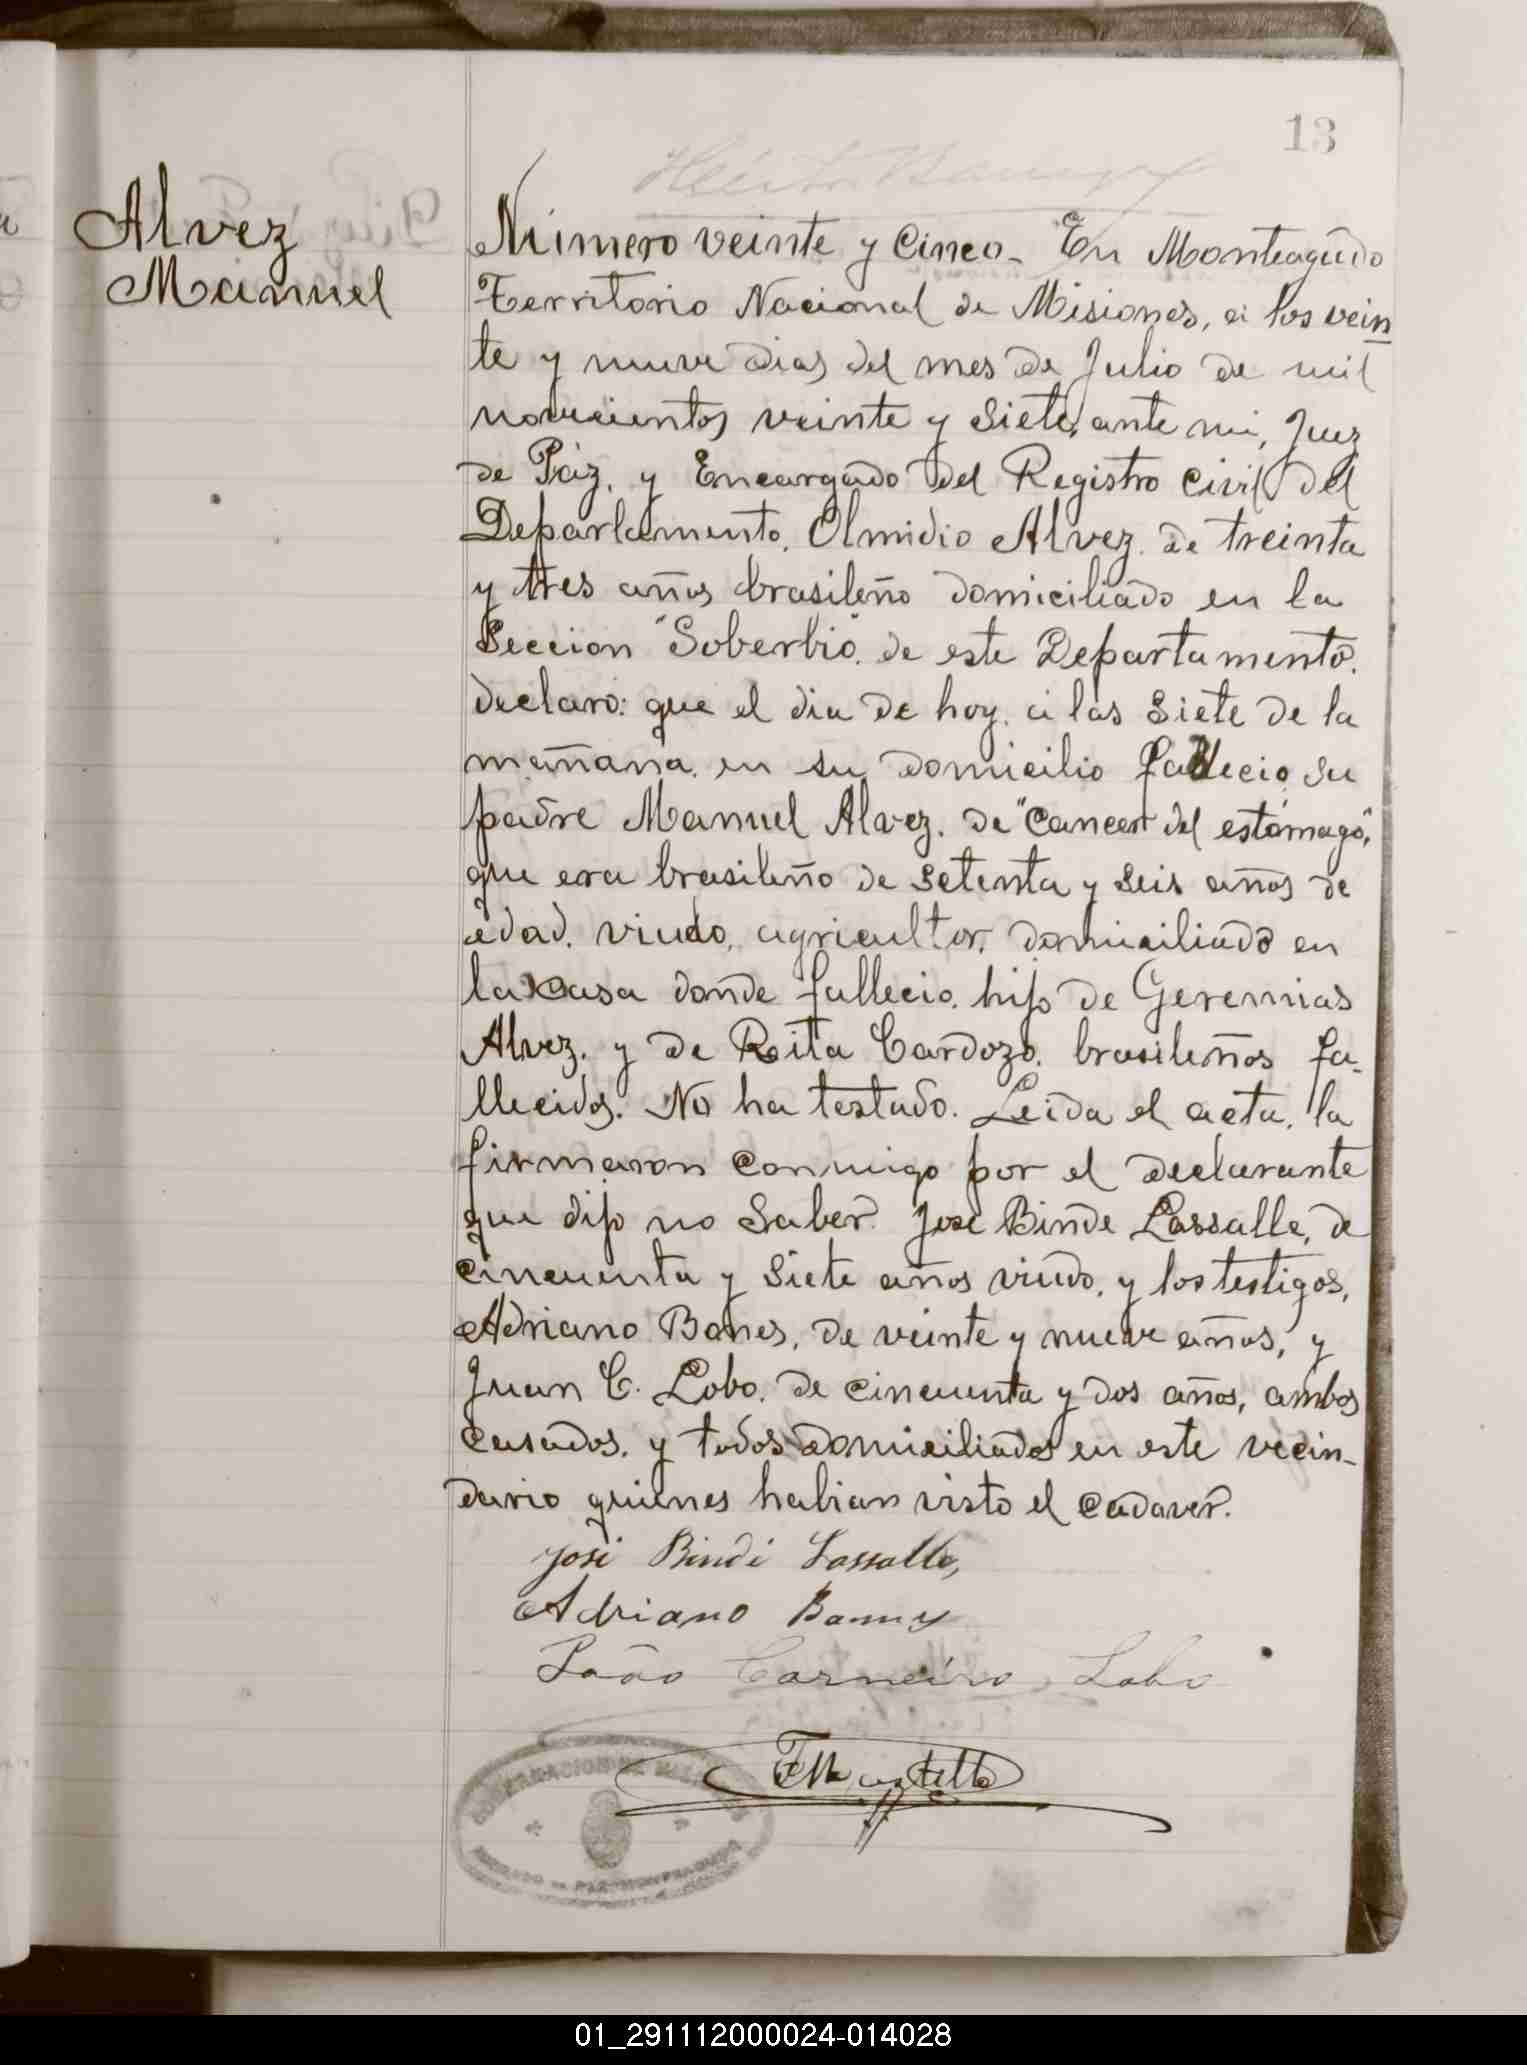 13
Alvez
Manuel
Número veinte y cinco_ En Monteagudo
Territorio Nacional de Misiones, a los vein
te y nueve dias del mes de Julio de mil
novecientos veinte y siete, ante mi, Juez
de Páz, y Encargado del Registro Civil del
Departamento. Olmidio Alvez. de treinta
y tres años brasileño domiciliado en la
Seccion "Soberbio" de este Departamento.
declaró: que el dia de hoy. a las siete de la
mañana. en su domicilio fallecio su
padre Manuel Alvez. de "Cancer del estómago",
que era brasileño de setenta y seis años de
edad. viudo, agricultor. domiciliado en
la casa donde fallecio. hijo de Geremias
Alvez. y de Rita Cardozo. brasileños fa-
llecidos. No ha testado. Leida el acta. la
firmaron conmigo por el declarante
que dijo no saber. José Binde Lassalle, de
cincuenta y siete años viudo, y los testigos,
Adriano Banes, de veinte y nueve años, y
Juan C. Lobo. de cincuenta y dos años, ambos
casados. y todos domiciliados en este vecin-
dario quienes habian visto el cadaver.
José Bindé Lassalle,
Adriano
João Carneiro Lobo
GOBERNACION DE MISIONES
JUZGADO DE PAZ MONTEAGUDO
01_291112000024-014028